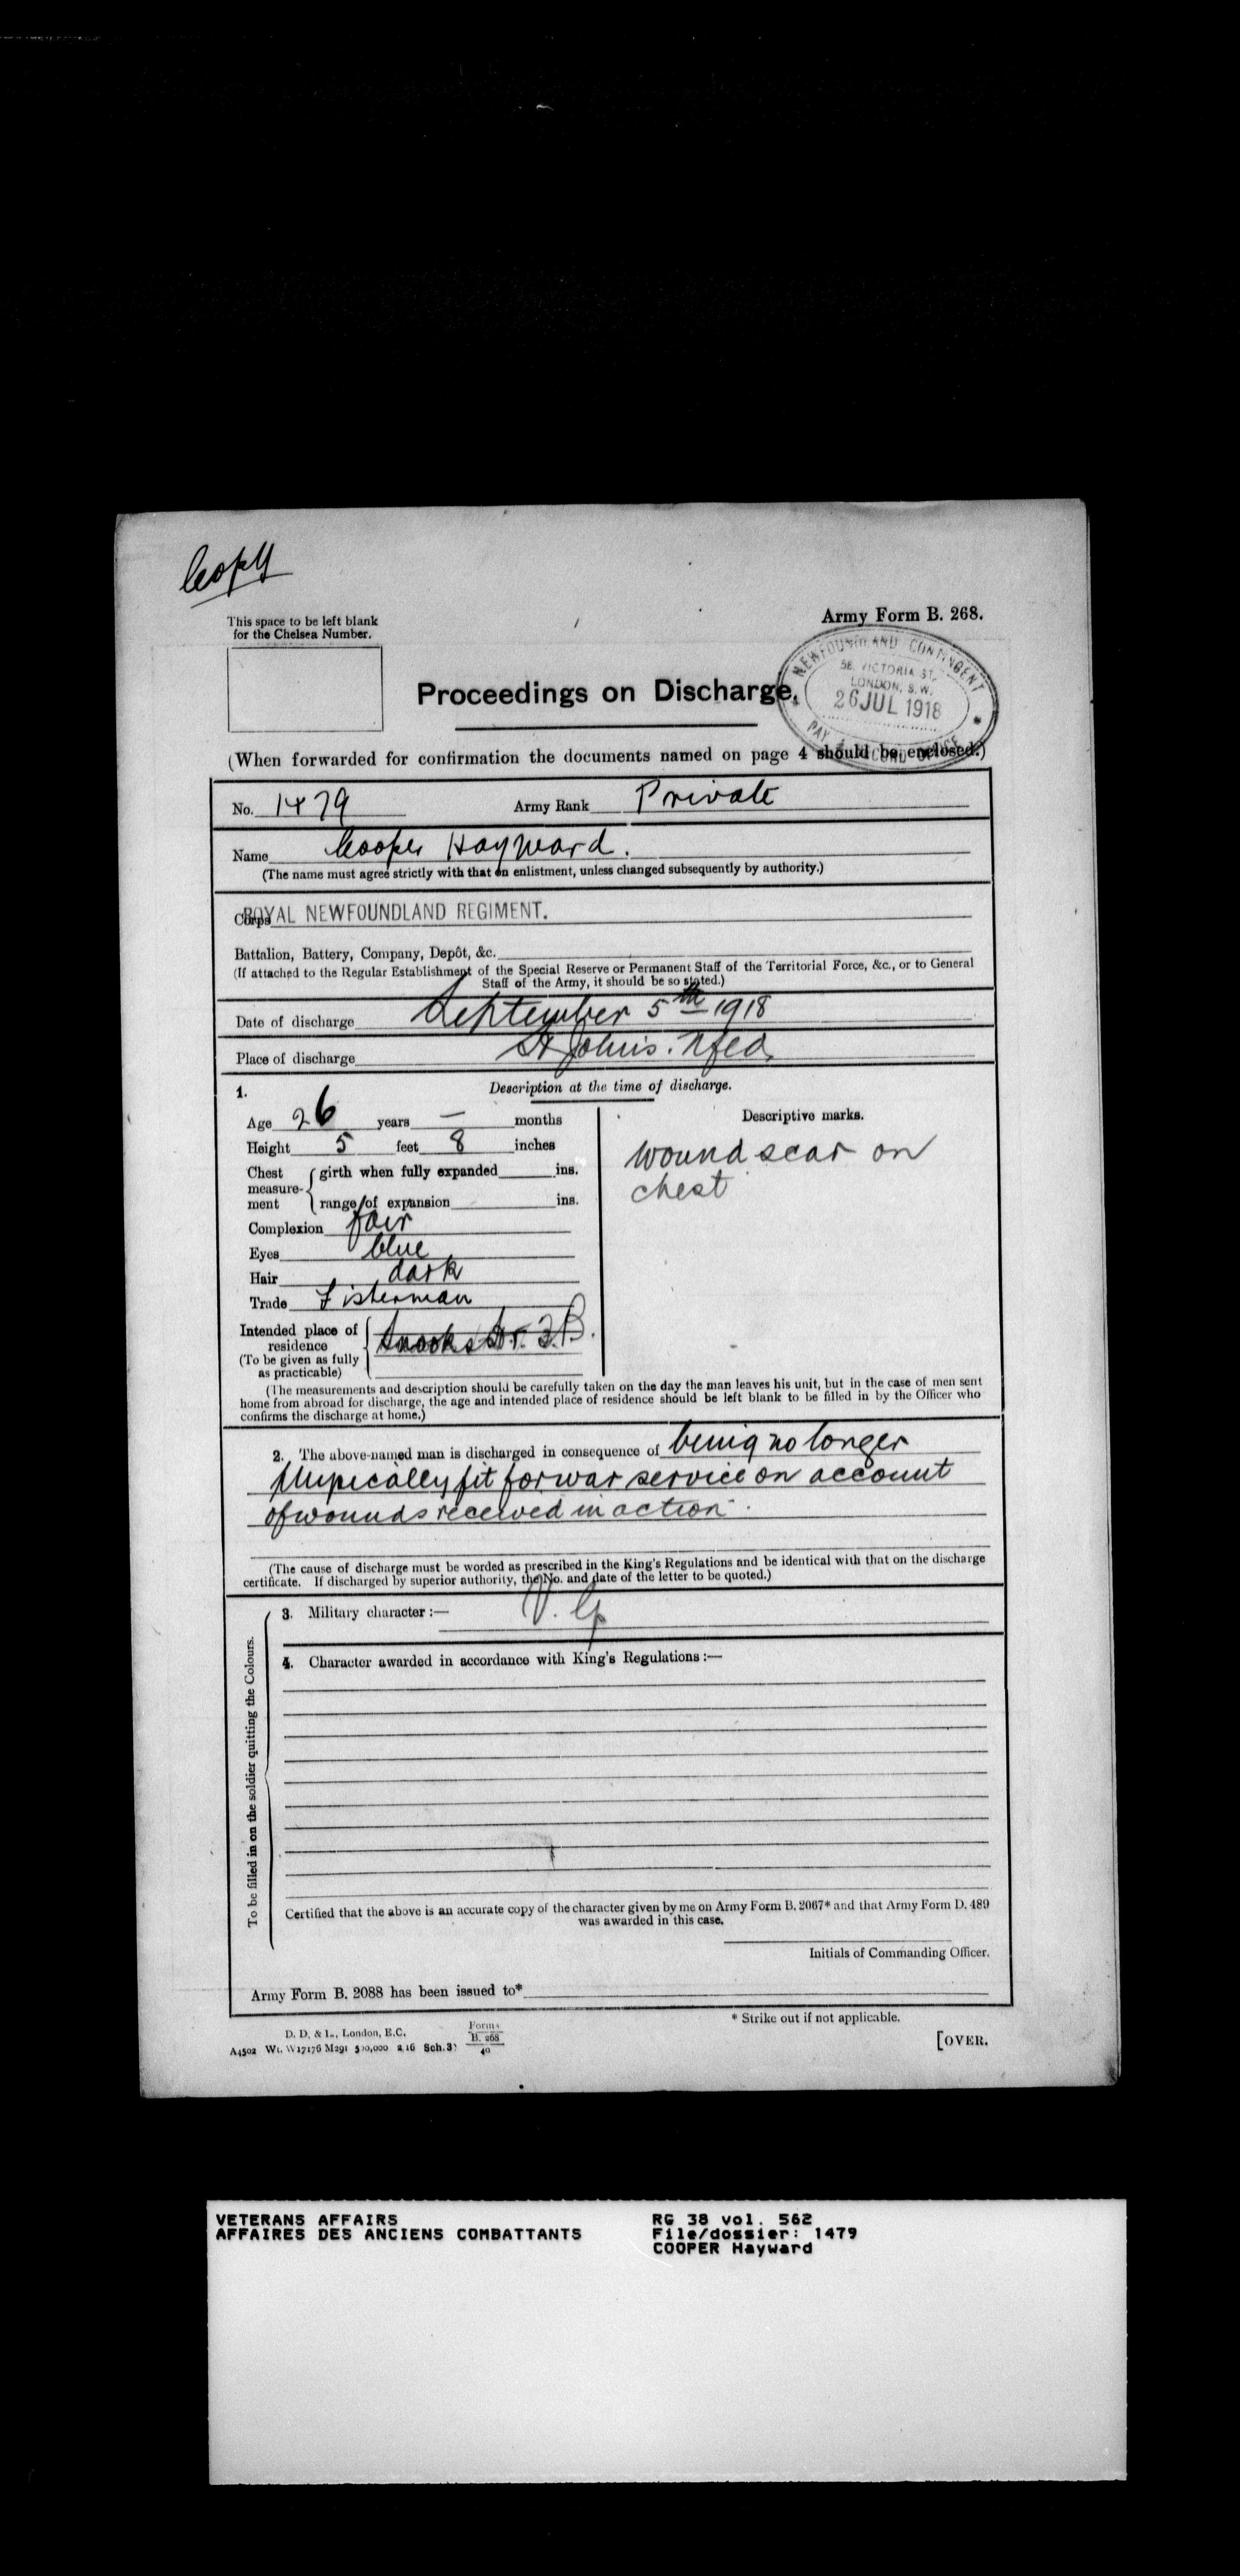 Copy
This space to be left blank
for the Chelsea Number.
Army Form B. 268.
NEWFOUNDLAND CONTINGENT
58, VICTORIA ST.,
LONDON, S.W.
26 JUL 1918
PAY & RECORD OFFICE
Proceedings on Discharge.
(When forwarded for confirmation the documents named on page 4 should be enclosed.)
No. 1479 Army Rank Private
Name Cooper Hayward.
(The name must agree strictly with that on enlistment, unless changed subsequently by authority.)
Corps ROYAL NEWFOUNDLAND REGIMENT.
Battalion, Battery, Company, Depôt, &c.
(If attached to the Regular Establishment of the Special Reserve or Permanent Staff of the Territorial Force, &c., or to General
Staff of the Army, it should be so stated.)
Date of discharge September 5th 1918
Place of discharge St Johns. Nfld.
1. Description at the time of discharge.
Age 26 years — months
Height 5 feet 8 inches
Chest measurement { girth when fully expanded ins.
range of expansion ins.
Complexion fair
Eyes blue
Hair dark
Trade Fisherman
Descriptive marks.
wound scar on
chest
Intended place of
residence
(To be given as fully
as practicable)
Snooks Hr. T.B.
(The measurements and description should be carefully taken on the day the man leaves his unit, but in the case of men sent
home from abroad for discharge, the age and intended place of residence should be left blank to be filled in by the Officer who
confirms the discharge at home.)
2. The above-named man is discharged in consequence of being no longer
physically fit for war service on account
of wounds received in action.
(The cause of discharge must be worded as prescribed in the King's Regulations and be identical with that on the discharge
certificate. If discharged by superior authority, the No. and date of the letter to be quoted.)
To be filled in on the soldier quitting the Colours.
3. Military character :— V. G
4. Character awarded in accordance with King's Regulations :—
Certified that the above is an accurate copy of the character given by me on Army Form B. 2067* and that Army Form D. 489
was awarded in this case.
Initials of Commanding Officer.
Army Form B. 2088 has been issued to*
* Strike out if not applicable.
D. D. & L., London, E.C.
A4502 Wt. W17176 M291 500,000 2 16 Sch. 3
Forms
B. 268
40
[OVER.
VETERANS AFFAIRS
AFFAIRES DES ANCIENS COMBATTANTS
RG 38 vol. 562
File/dossier: 1479
COOPER Hayward